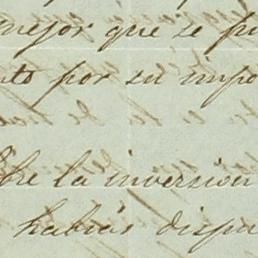 mejor que se pu
to por su impo
bre la inversion
habias dispu